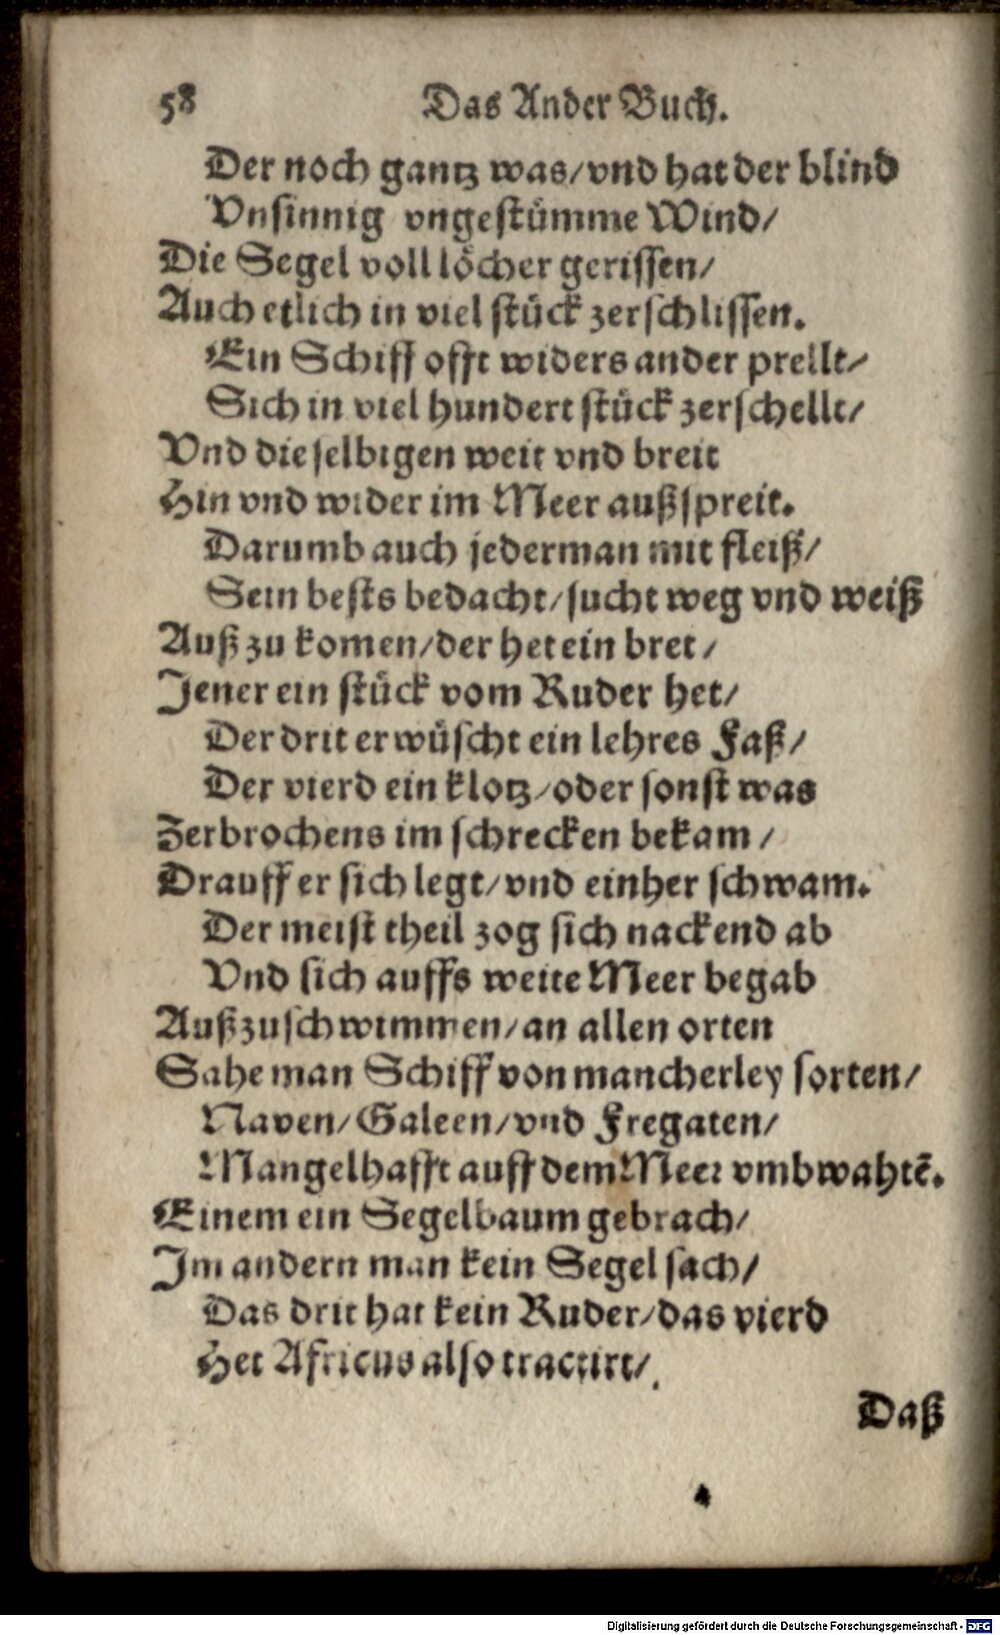 58 Das Ander Buch.
Der noch gantz was/vnd hat der blind
Vnsinnig vngestümme Wind/
Die Segel voll löcher gerissen/
Auch etlich in viel stück zerschlissen.
Ein Schiff offt widers ander prellt/
Sich in viel hundert stück zerschellt/
Vnd dieselbigen weit vnd breit
Hin vnd wider im Meer außspreit.
Darumb auch jederman mit fleiß/
Sein bests bedacht/sucht weg vnd weiß
Auß zu komen/der het ein bret/
Jener ein stück vom Ruder het/
Der drit erwüscht ein lehres Faß/
Der vierd ein klotz/oder sonst was
Zerbrochens im schrecken bekam/
Drauff er sich legt/vnd einher schwam.
Der meist theil zog sich nackend ab
Vnd sich auffs weite Meer begab
Außzuschwimmen/an allen orten
Sahe man Schiff von mancherley sorten/
Naven/Galeen/vnd Fregaten/
Mangelhafft auff dem Meer vmbwahtē.
Einem ein Segelbaum gebrach/
Im andern man kein Segel sach/
Das drit hat kein Ruder/das vierd
Het Africus also tractirt/
Daß
Digitalisierung gefördert durch die Deutsche Forschungsgemeinschaft - DFG